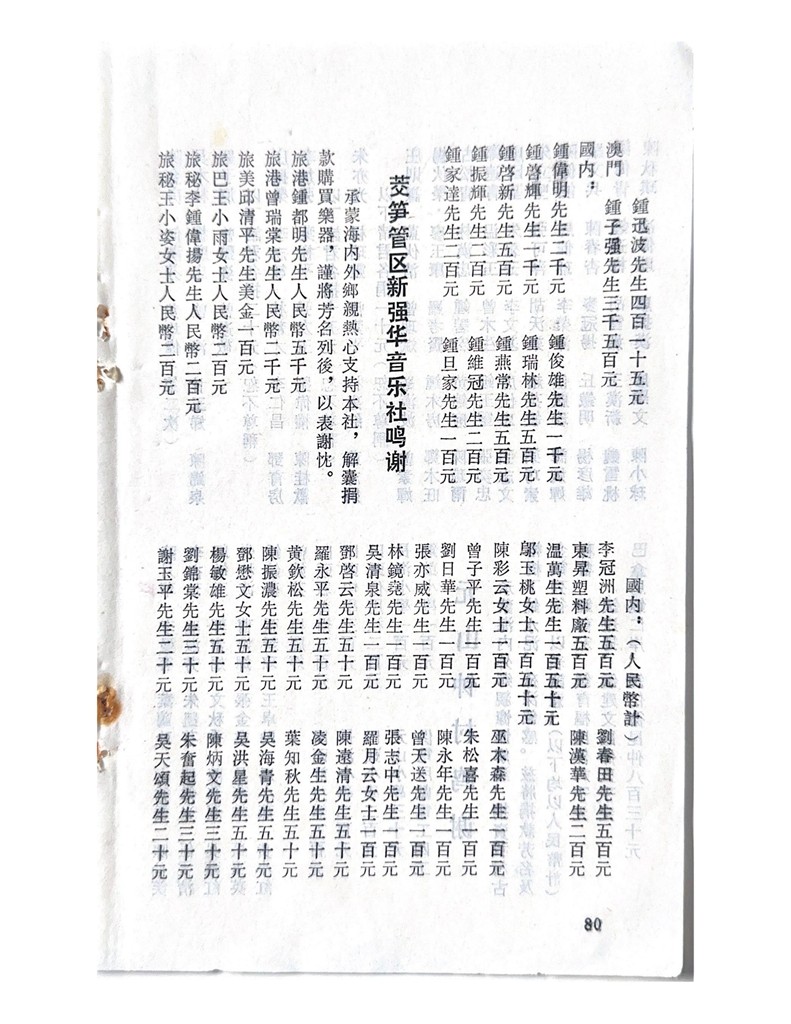 鍾迅波先生四百一十五元
澳門 鍾子强先生三千五百元
國内：
鍾偉明先生二千元 鍾俊雄先生一千元
鍾啓輝先生一千元 鍾瑞林先生五百元
鍾啓新先生五百元 鍾燕常先生五百元
鍾振輝先生二百元 鍾維冠先生二百元
鍾家達先生二百元 鍾旦家先生一百元
茭笋管区新强华音乐社鸣谢
承蒙海内外鄉親熱心支持本社，解囊捐
款購買樂器，謹將芳名列後，以表謝忱。
旅港鍾都明先生人民幣五千元
旅港曾瑞棠先生人民幣二千元
旅美邱清平先生美金一百元
旅巴王小雨女士人民幣二百元
旅秘李鍾偉揚先生人民幣二百元
旅秘王小姿女士人民幣二百元
國内：（人民幣計）
李冠洲先生五百元 劉春田先生五百元
東昇塑料廠五百元 陳漢華先生二百元
温萬生先生一百五十元
鄔玉桃女士一百五十元
陳彩云女士一百元 巫木森先生一百元
曾子平先生一百元 朱松喜先生一百元
劉日華先生一百元 陳永年先生一百元
張亦威先生一百元 曾天送先生一百元
林鏡堯先生一百元 張志中先生一百元
吳清泉先生一百元 羅月云女士一百元
鄧啓云先生五十元 陳遠清先生五十元
羅永平先生五十元 凌金生先生五十元
黄欽松先生五十元 葉知秋先生五十元
陳振濃先生五十元 吳海青先生五十元
鄧懋文女士五十元 吳洪星先生五十元
楊敏雄先生五十元 陳炳文先生三十元
劉錦棠先生三十元 朱奮起先生三十元
謝玉平先生二十元 吳天頌先生二十元
80